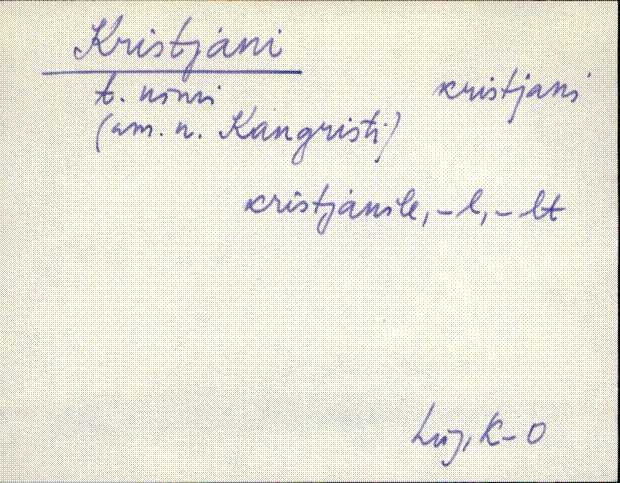 Kristjani
t. nimi
kristjani
(am. n. Kangristi)
kristjanile, -l, -lt
Lüg, K-O